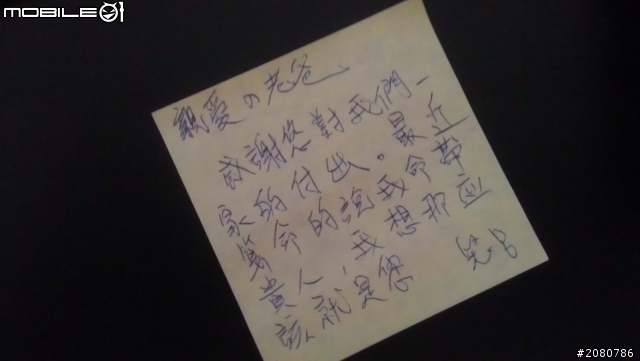 MOBILE01
親愛の老爸
感謝您對我們一
家的付出。最近
算命的說我命帶
貴人,我想那应
該就是您
#2080786